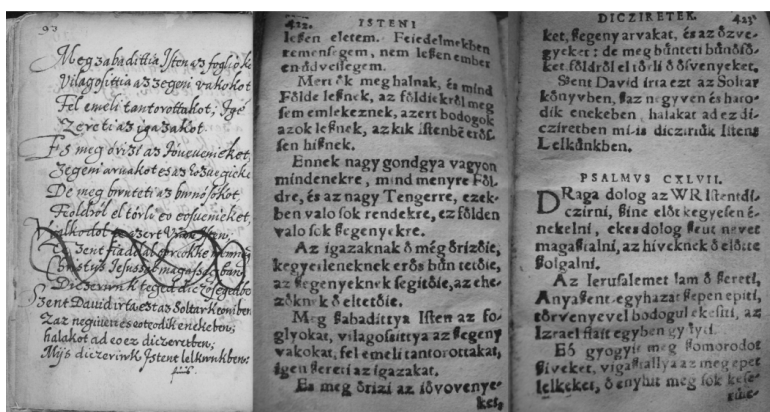 93
Megzabadittia Isten az foglioka
Vilagosittia az zegeni vakokot
Fel emeli tantorottakot; Igē
Zereti az igazakot.
Es meg őrizi az Iőueuenieket,
Zegeni aruakot es az Eozuegieke
De meg bwnteti az bwnősőkot
Feoldről el tőrli eo eosuenieket,
Zent fiaddal
Christus Jesussal magassagban
Diczerwnk teged
Szent Dauid irta ezt az Soltar keoniuben
Zaz negiuen es eoteodik enekeben;
halakot ad eo ez diczeretben;
Mijs diczerwnk Istent lelkwnkben:
412. ISTENI
leßen eletem. Feiedelmekben
remenſegem, nem leßen ember
en üdveſſegem.
Mert ők meg halnak, és mind
Földe leßnek, az földiekről meg
ſem emlekeznek, azert bodogok
azok leßnek, az kik iſtenbē erőſ-
ſen hißnek.
Ennek nagy gondgya vagyon
mindenekre, mind menyre Föl-
dre, és az nagy Tengerre, ezek-
ben valo ſok rendekre, ez földen
valo ſok ßegenyekre.
Az igazaknak ő még őrizőie,
kegyetleneknek erős bűn tetőie,
az ßegenyeknek ſegitőie, az ehe-
zőknek ő eltetőie.
Meg ßabadittya Iſten az fo-
glyokat, vilagoſittya az ßegeny
vakokat, fel emeli tantorottakat,
igen ßereti az igazakat.
Es meg őrizi az iővovenye-
ket,
DICZIRETEK. 423
ket, ßegeny arvakat, és az özve-
gyeket: de meg bűnteti bűnőſő-
ket földről el tőrli ő őſvenyeket.
Szent David irta ezt az Soltar
kőnyvben, ßaz negyven és haro-
dik enekeben, halakat ad ez di-
cziretben mi-is dicziriük Iſtent
Lelkünkben.
PSALMVS CXLVII.
DRaga dolog az WR Iſtent di-
czirni, ßine előt kegyeſen é-
nekelni, ekes dolog ßent nevet
magaßtalni, az híveknek ő előtte
ßolgalni.
Az Ieruſalemet lam ő ßereti,
Anyaßent-egyhazat ßepen epiti,
tőrvenyevel bodogul ekeſiti, az
Izrael fiait egyben gyűyti.
Eő gyogyit meg ßomorodot
ßiveket, vigaßtallya az meg epet
lelkeket, ő enyhit meg ſok keſe-